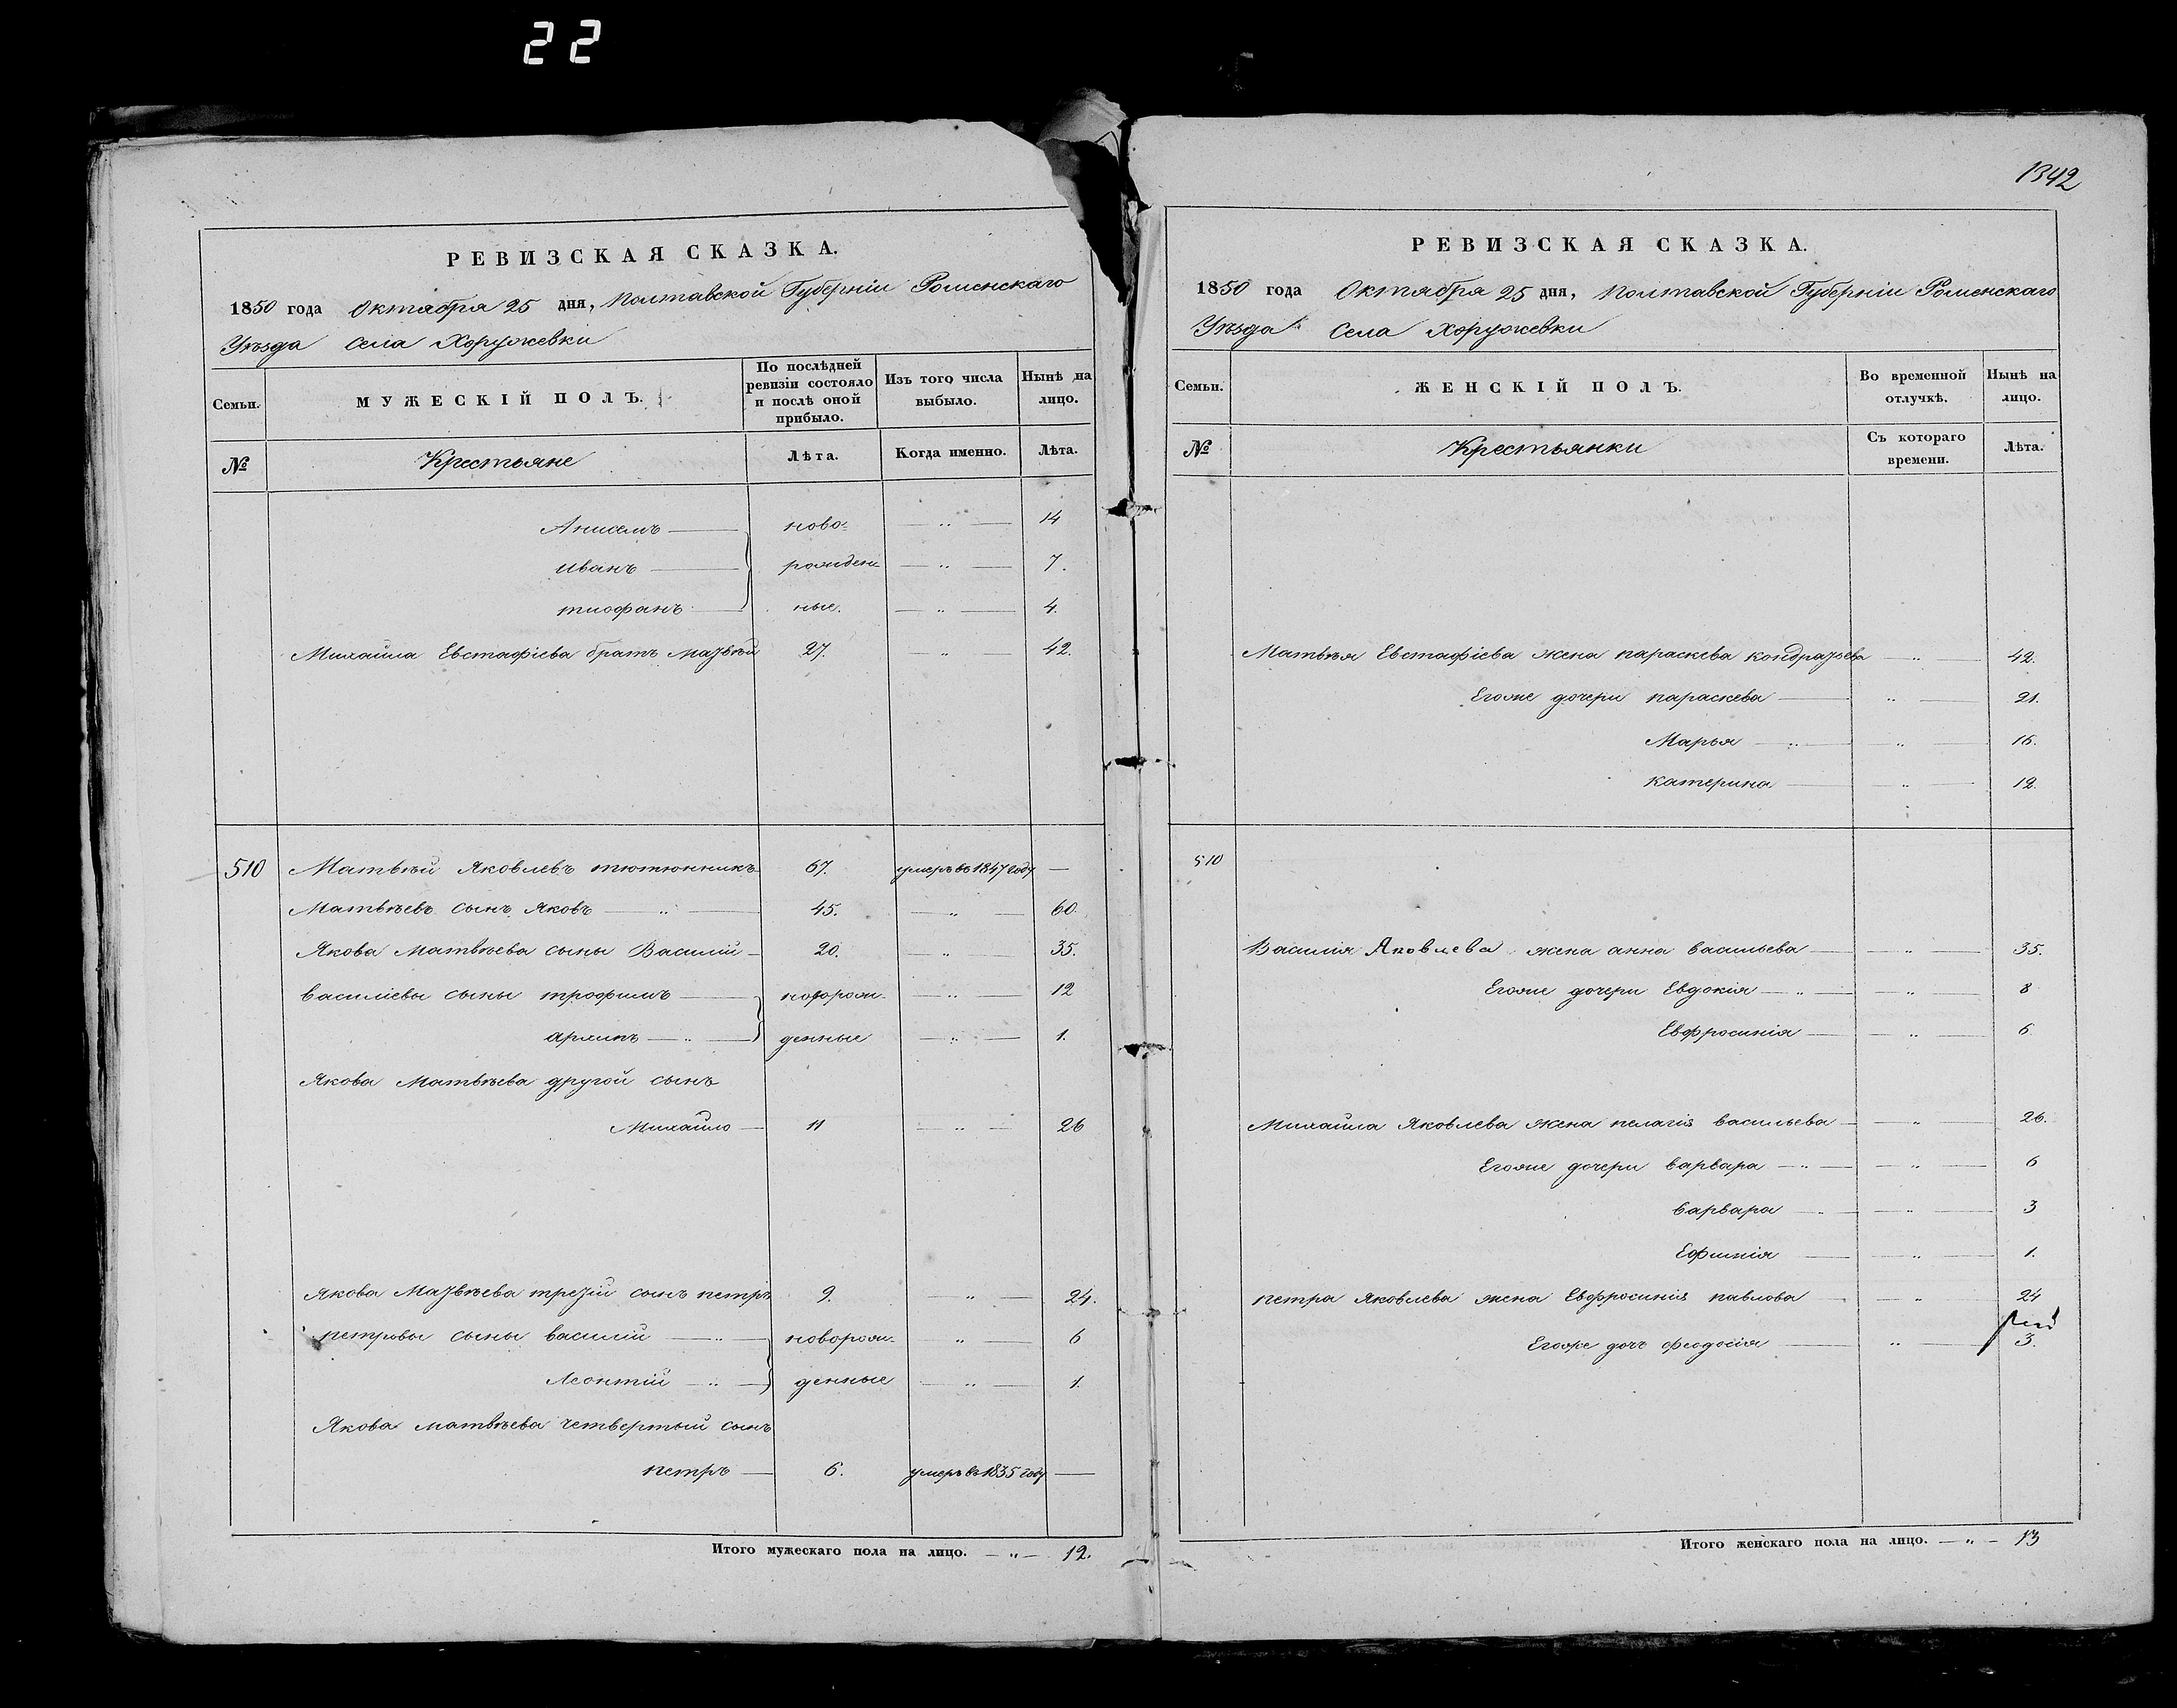 22
РЕВИЗСКАЯ СКАЗКА.
1850 года Октября 25 дня, Полтавской Губерніи Роменскаго
Уѣзда села Хоружевки
Семьи.
МУЖЕСКІЙ ПОЛЪ.
По послѣдней ревизіи состояло и послѣ оной прибыло.
Изъ того числа выбыло.
Нынѣ на лицо.
№ Крестьяне Лѣта. Когда именно. Лѣта.
Анисемъ — ново- — " — 14
иванъ — рожден — " — 7.
тиофанъ — ные. — " — 4.
Михаила Евстафіева братъ матвѣй 27. — " — 42.
510 Матвѣй Яковлевъ тютюнникъ 67. умеръ въ 1847 году —
Матвѣевъ сынъ Яковъ — " — 45. — " — 60.
Якова Матвѣева сыны Василій — 20. — " — 35.
василіевы сыны трофимъ — поворож- — " — 12
архипъ — " — денные — " — 1.
Якова Матвѣева другой сынъ
Михайло — 11 — " — 26
Якова Матвѣева третій сынъ петръ 9. — " — 24.
петровы сыны василій — " — новорож- " — 6
Леонтій — " — денные — " — 1.
Якова матвѣева четвертый сынъ
петръ — 6. умеръ въ 1835 году —
Итого мужескаго пола на лицо. — " — 12.
1342
РЕВИЗСКАЯ СКАЗКА.
1850 года Октября 25 дня, Полтавской Губерніи Роменскаго
Уѣзда села Хоружевки
Семьи.
ЖЕНСКІЙ ПОЛЪ.
Во временной отлучкѣ.
Нынѣ на лицо.
№ Крестьянки Съ котораго времени. Лѣта.
Матвѣя Евстафіева жена параскева кондратьева — " — 42.
Егоже дочери параскева — " — 21.
Марья — " — " — 16.
катерина — " — 12.
510
Василія Яковлева жена анна васильева — " — 35.
Егоже дочери Евдокія — " — " — 8
Евфросинія — " — 6
Михайла Яковлева жена пелагія васильева — " — 26.
Егоже дочери варвара — " — " — 6
варвара — " — " — 3
Ефимія — " — 1.
петра Яковлева жена Евфросинія павлова — " 24
Егоже дочь феодосія — " — 3.
Итого женскаго пола на лицо. — " — 13